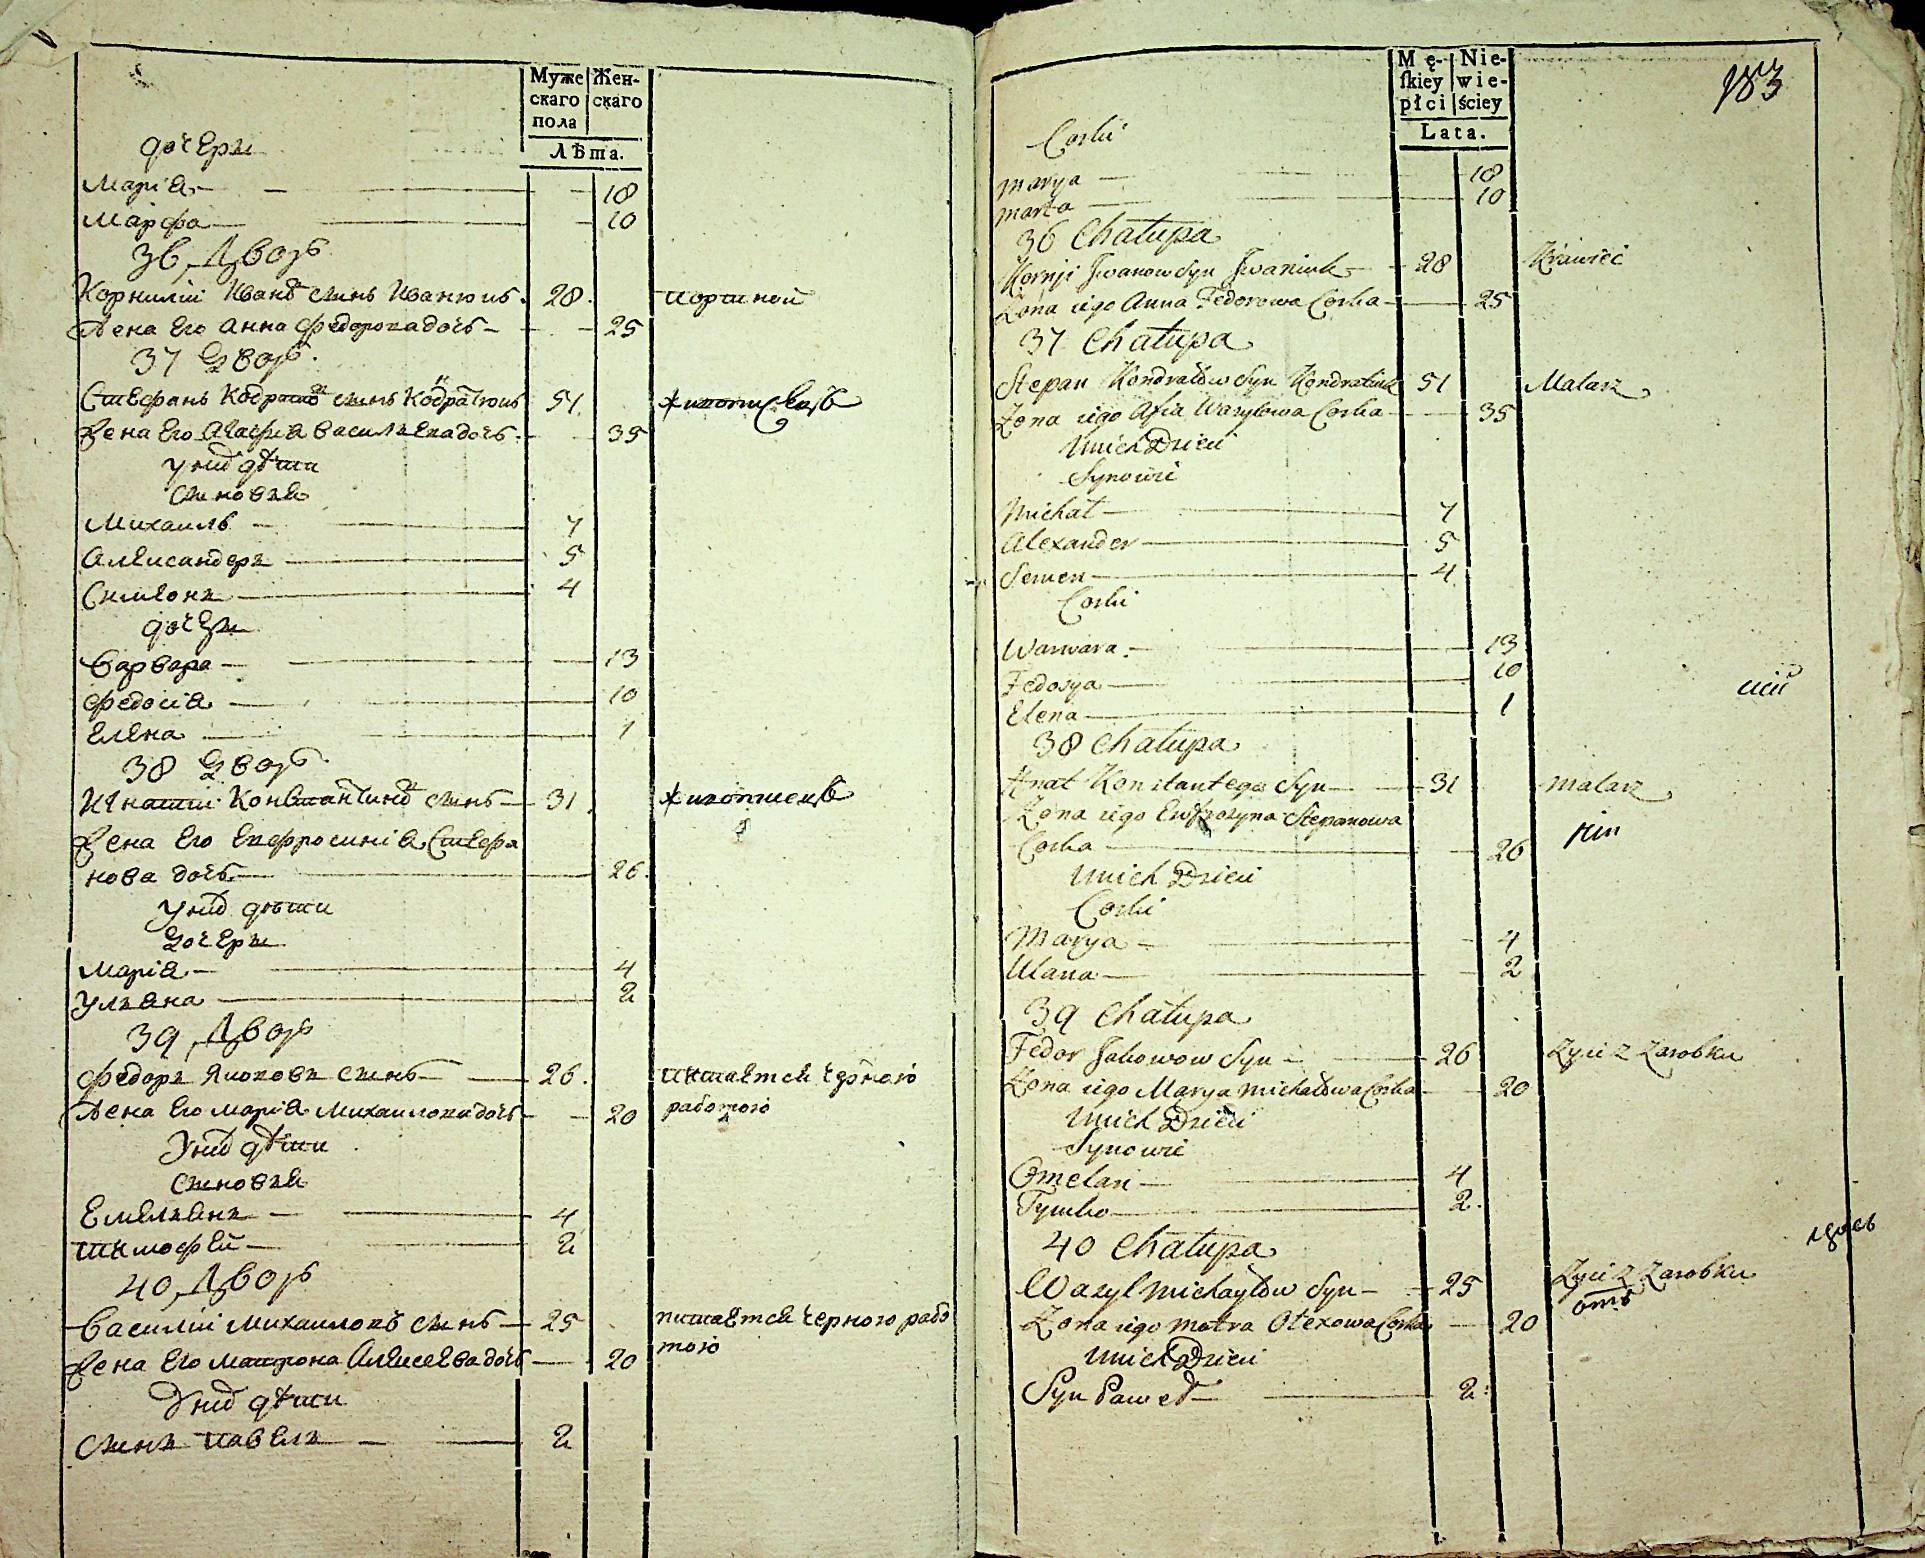 Муже
скаго
пола
Жен-
скаго
Лѣта.
дочери
Марія — 18
Марфа — 10
36 Дворъ
Корнилій Иванов синъ Иванюкъ 28 портной
Жена Его Анна Федорова дочь — 25
37 Дворъ
Стефанъ Кодратов синъ Кондратюкъ 51 живописецъ
Жена Его Агафия Василиева дочь 35
У них дѣти
синовья
Михаилъ — 7
Александеръ — 5
Симеонъ — 4
дочери
Варвара — 13
Федосія — 10
Елена — 1
38 Дворъ
Игнатій Константинов синъ — 31 живописецъ
Жена Его Евфросинія Стефа
нова дочь — 26
У них дѣти
Дочери
Марія — 4
Ульяна — 2
39 Дворъ
Федоръ Яковов синъ — 26 питается черною
Жена Его Марія Михаилова дочь — 20 работою
У них дѣти
синовья
Емельянъ — 4
Тимофей — 2
40 Дворъ
Василій Михаиловъ синъ — 25 питается черного рабо
Жена Его Матрона Алексеева дочь — 20 тою
У них дѣти
синъ Павелъ — 2
Mę-
skiey
płci
Nie-
wie-
ściey
Lata.
183
Corki
Marya — 18
Marta — 10
36 Chałupa
Korniji Iwanow Syn Iwaniuk — 28 Krawiec
Żona iego Anna Fedorowa Corka — 25
37 Chałupa
Stepan Kondratow Syn Kondratiuk 51 Malarz
Żona iego Afia Wasylowa Corka — 35
Unich Dzieci
Synowie
Michał — 7
Alexander — 5
Semen — 4
Corki
Warwara — 13
Fedosya — 10
Elena — 1
38 Chałupa
Hnat Konstantego Syn — 31 Malarz
Żona iego Eufrozyna Stepanowa
Corka — 26
Unich Dzieci
Corki
Marya — 4
Ulana — 2
39 Chałupa
Fedor Jakowow Syn — 26 Żyie z Zarobku
Żona iego Marya Michałowa Corka — 20
Unich Dzieci
Synowie
Omelan — 4
Tymko — 2
40 Chałupa
Wasyl Michayłow Syn — 25 Żyie z Zarobku
Żona iego Motra Olexowa Corka — 20
Unich Dzieci
Syn Paweł — 2